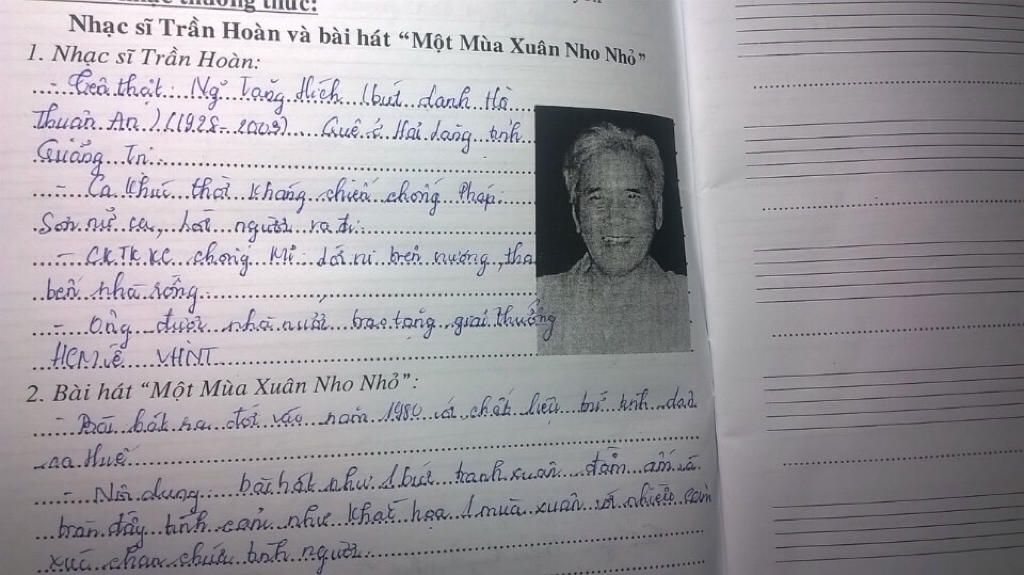 thường thức:
Nhạc sĩ Trần Hoàn và bài hát “Một Mùa Xuân Nho Nhỏ”
1. Nhạc sĩ Trần Hoàn:
- Tên thật: Ng Tăng Hích (bút danh Hồ
Thuận An) (1928-2003) Quê ở Hải Lăng tỉnh
Quảng Trị
- Ca khúc thời kháng chiến chống Pháp
Sơn nữ ca, hát người ra đi
- CKTKKC chống Mĩ trên nương,
bên nhà rông
- Ông được nhà nước trao tặng giải thưởng
HCM về VHNT
2. Bài hát “Một Mùa Xuân Nho Nhỏ”:
- Bài hát ra đời vào năm 1980 với chất liệu trữ tình dân
ca Huế
- Nội dung: bài hát như 1 bức tranh xuân đầm ấm và
tràn đầy tình cảm như khắc họa 1 mùa xuân với nhiều cảm
xúc chan chứa tình người